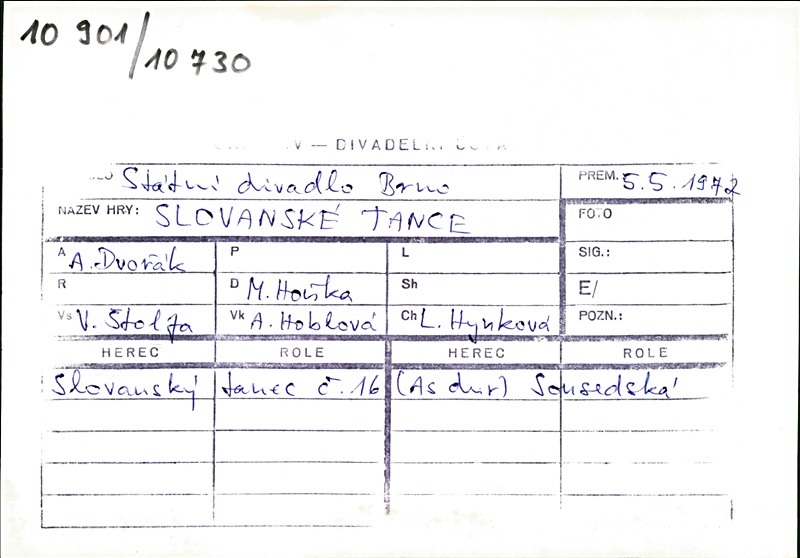 10 901/10 730
V — DIVADELNÍ
Státní divadlo Brno PREM. 5.5.1972
NÁZEV HRY: SLOVANSKÉ TANCE FOTO
A A. Dvořák P L SIG.:
R D M. Houska Sh E/
Vs V. Štolfa Vk A. Hoblová Ch L. Hynková POZN.:
HEREC ROLE HEREC ROLE
Slovanský tanec č. 16 (As dur) Sousedská